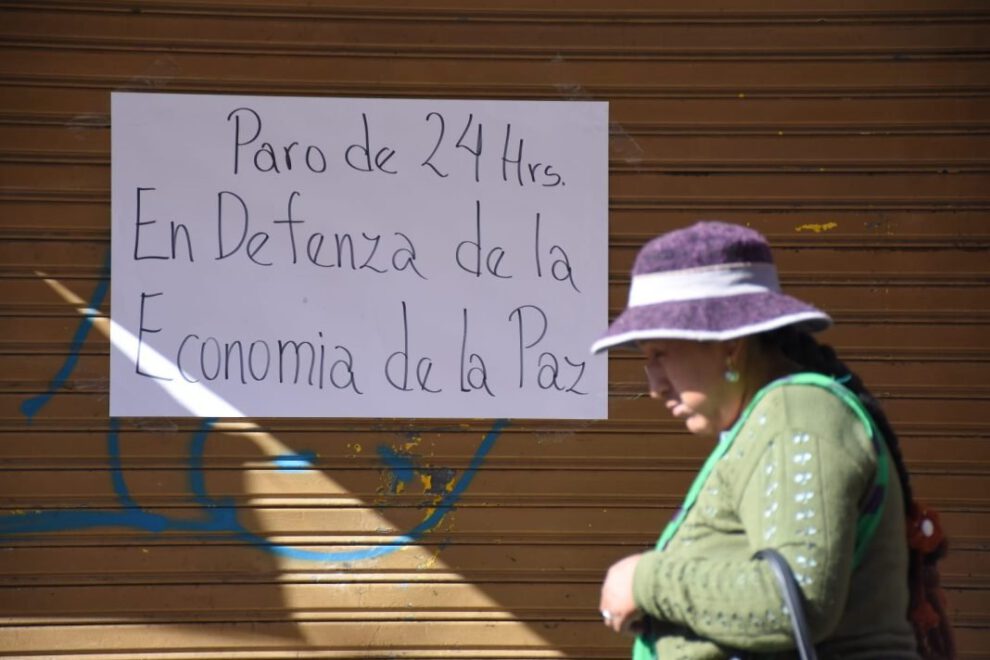 Paro de 24 Hrs.
En Defenza de la
Economia de la Paz